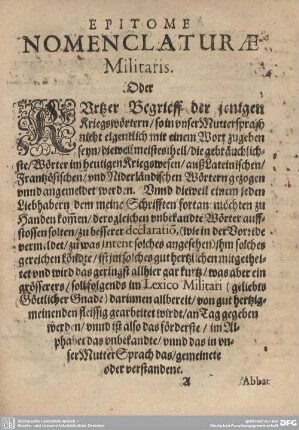 EPITOME
NOMENCLATURÆ
Militaris.
Oder
KUrtzer Begrieff der jenigen
Kriegswörtern / so in vnser Muttersprach
nicht eigentlich mit einem Wort zu geben
seyn / dieweil meistestheil / die gebräuchlich-
ste / Wörter im heutigen Kriegswesen / auß Lateinischen /
Frantzösischen / vnd Niderländischen Wörtern gezogen
vnnd angemeldet werden. Vnnd dieweil einem jeden
Liebhabern dem meine Schrifften fortan möchten zu
Handen kom̃en / derogleichen vnbekandte Wörter auff-
stossen solten / zu besserer declaratiõ, (wie in der Vorrede
vermeldet / zu was intent solches angesehen) ihm solches
gereichen köndte / ist jm solches gut hertzlichen mitgethei-
let vnd wird das geringst allhier gar kurtz / was aber ein
grösserers / soll folgends im Lexico Militari (geliebts
Göttlicher Gnade) darinnen allbereit / von gut hertzig-
meinenden fleissig gearbeitet wirdt / an Tag gegeben
werden / vnnd ist also das förderste / im Al-
phabet das vnbekandte / vnnd das in vn-
ser Mutter Sprach das / gemeinete
oder verstandene.
A Abbat